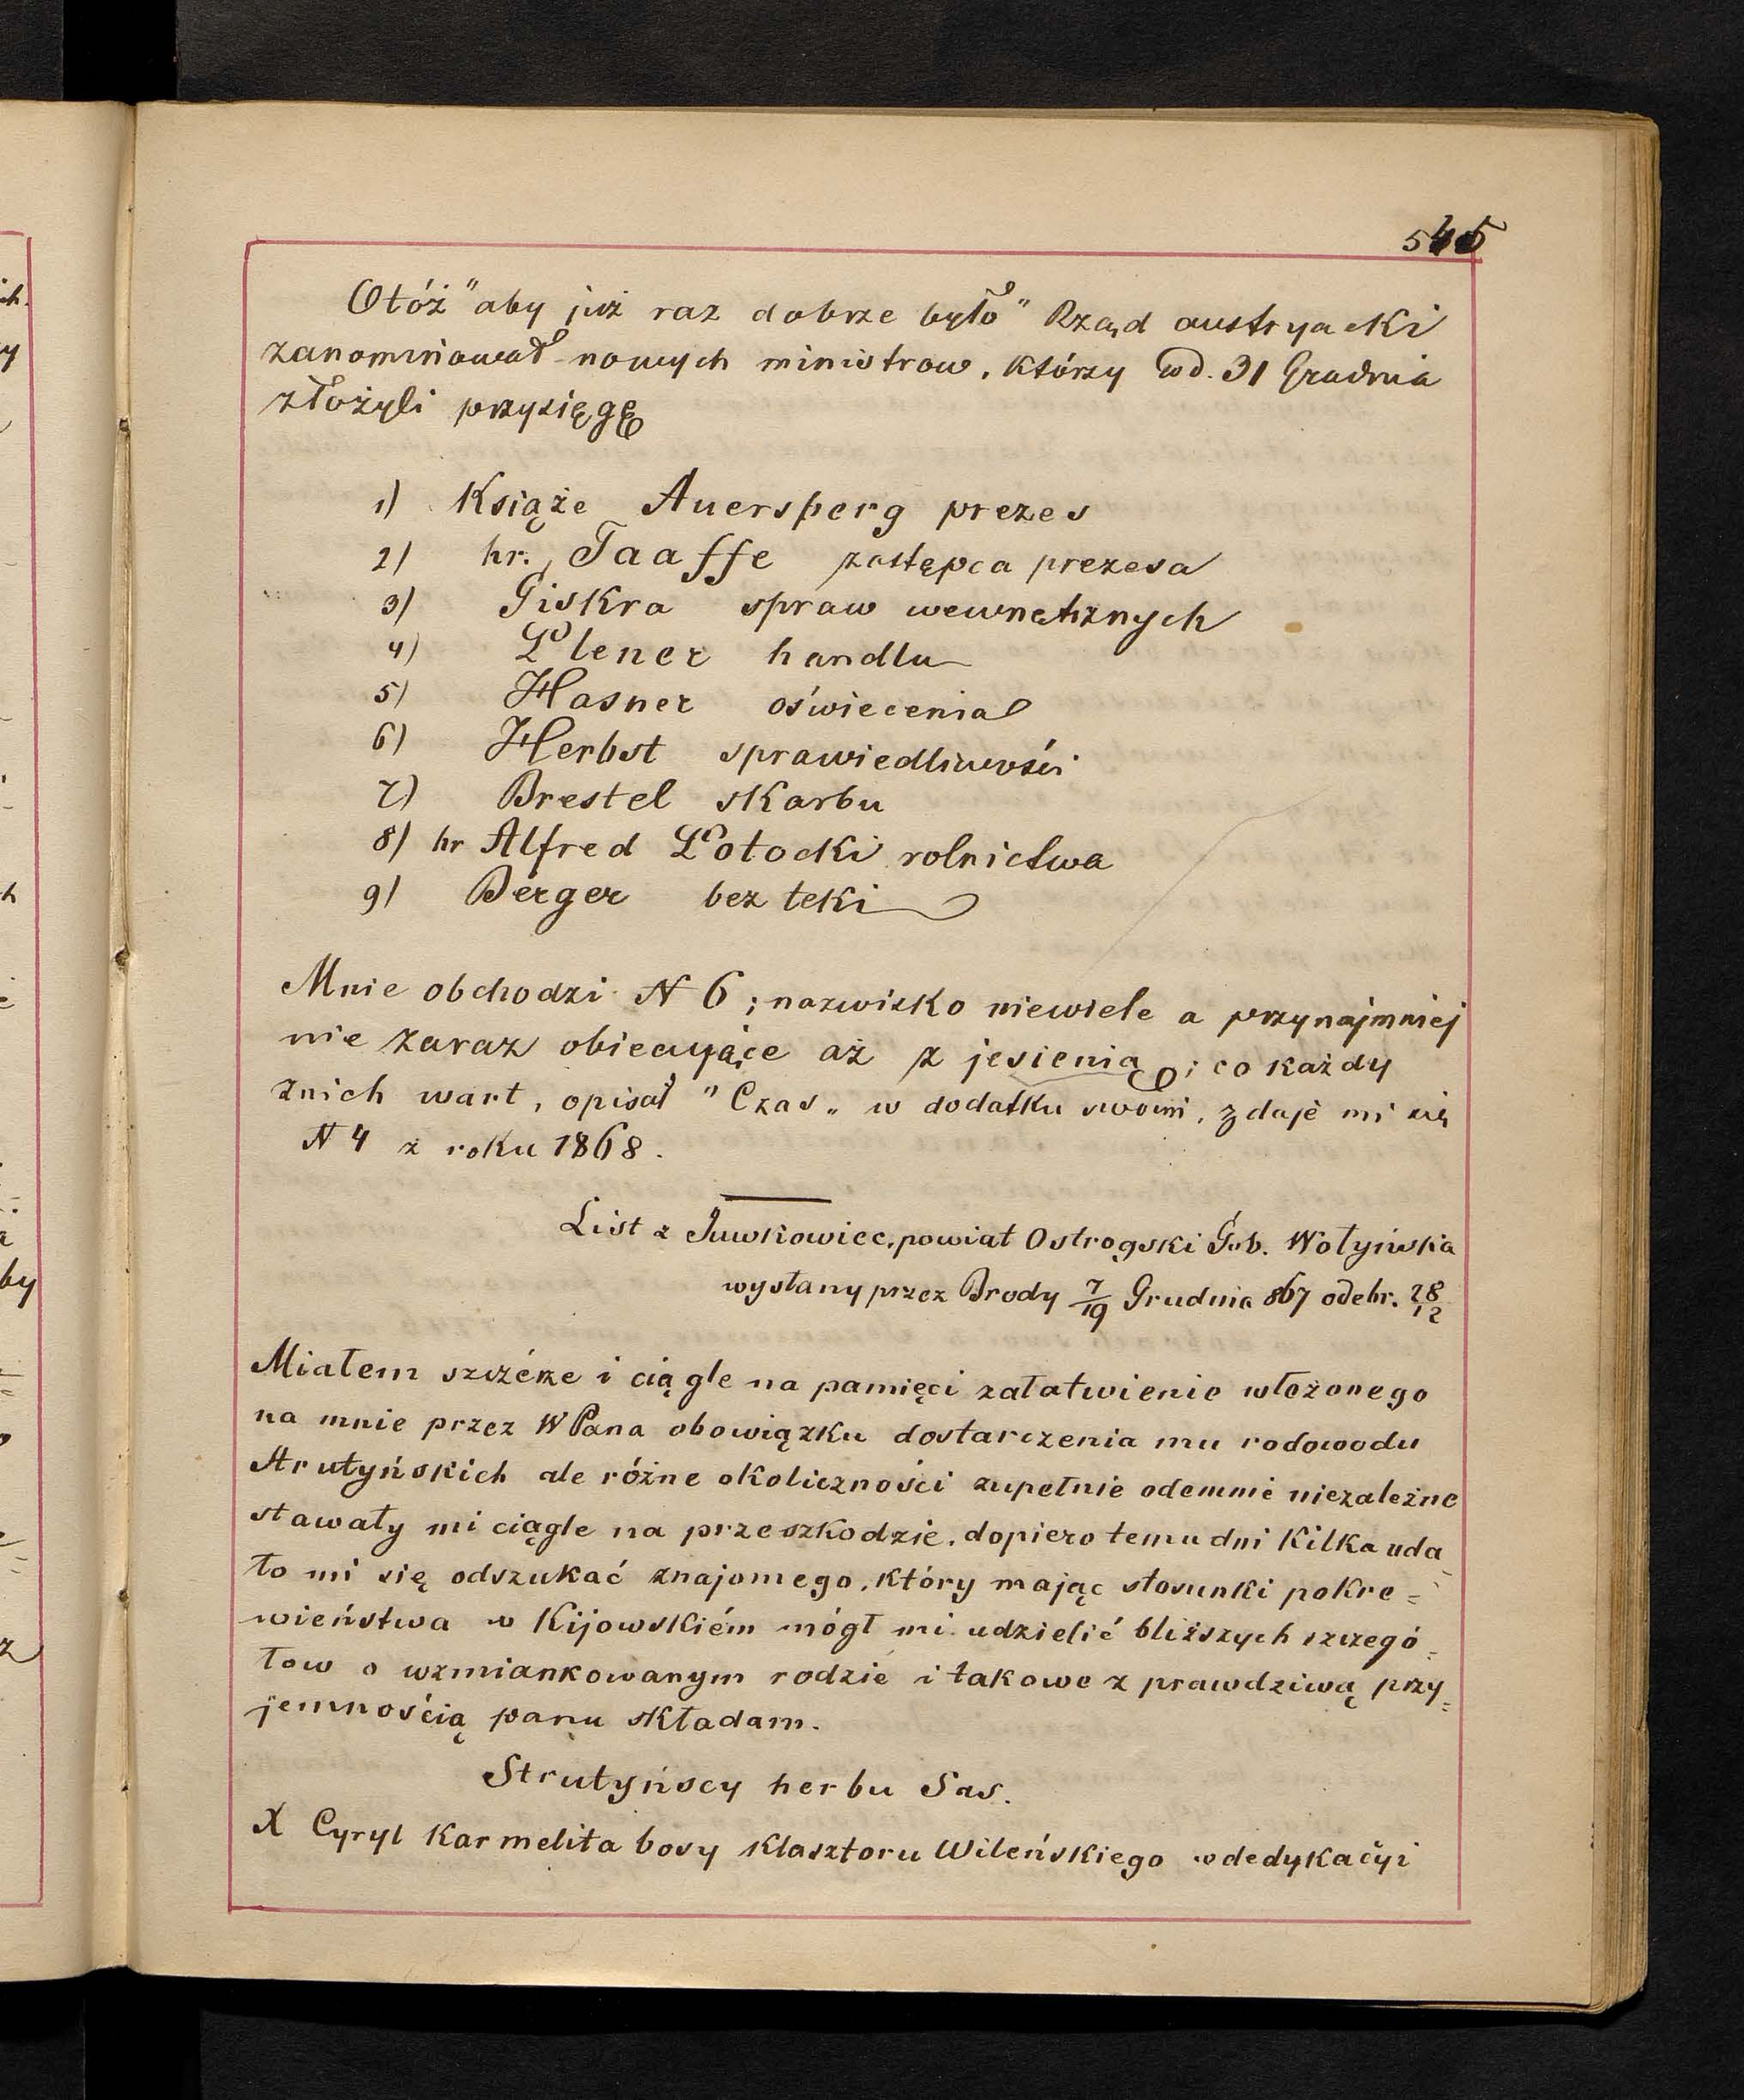 545
Otóż "aby już raz dobrze było" Rząd austryacki
zanominował nowych ministrow, którzy w d. 31 Grudnia
złożyli przysięgę
1) Książe Auersperg prezes
2) hr. Taaffe zastępca prezesa
3) Giskra spraw wewnętrznych
4) Plener handlu
5) Hasner oświecenia
6) Herbst sprawiedliwości
7) Brestel skarbu
8) hr Alfred Potocki rolnictwa
9) Berger bez teki
Mnie obchodzi N 6; nazwisko niewiele a przynajmniej
nie zaraz obiecujące aż z jesienią; co każdy
znich wart, opisał "Czas" w dodatku swoim, zdaje mi się
N 4 z roku 1868.
List z Juwkowiec, powiat Ostrogski Gub. Wołyńska
wysłany przez Brody 7/19 Grudnia 867 odebr. 28/12
Miałem szczérze i ciągle na pamięci załatwienie włożonego
na mnie przez WPana obowiązku dostarczenia mu rodowodu
Strutyńskich ale różne okoliczności zupełnie odemnie niezależne
stawały mi ciągle na przeszkodzie, dopiero temu dni kilka uda
ło mi się odszukać znajomego, który mając stosunki pokre=
wieństwa w Kijowskiém mógł mi udzielić bliższych szczegó=
łow o wzmiankowanym rodzie i takowe z prawdziwą przy=
jemnością panu składam.
Strutyńscy herbu Sas.
X Cyryl Karmelita bosy klasztoru Wileńskiego w dedykacyi